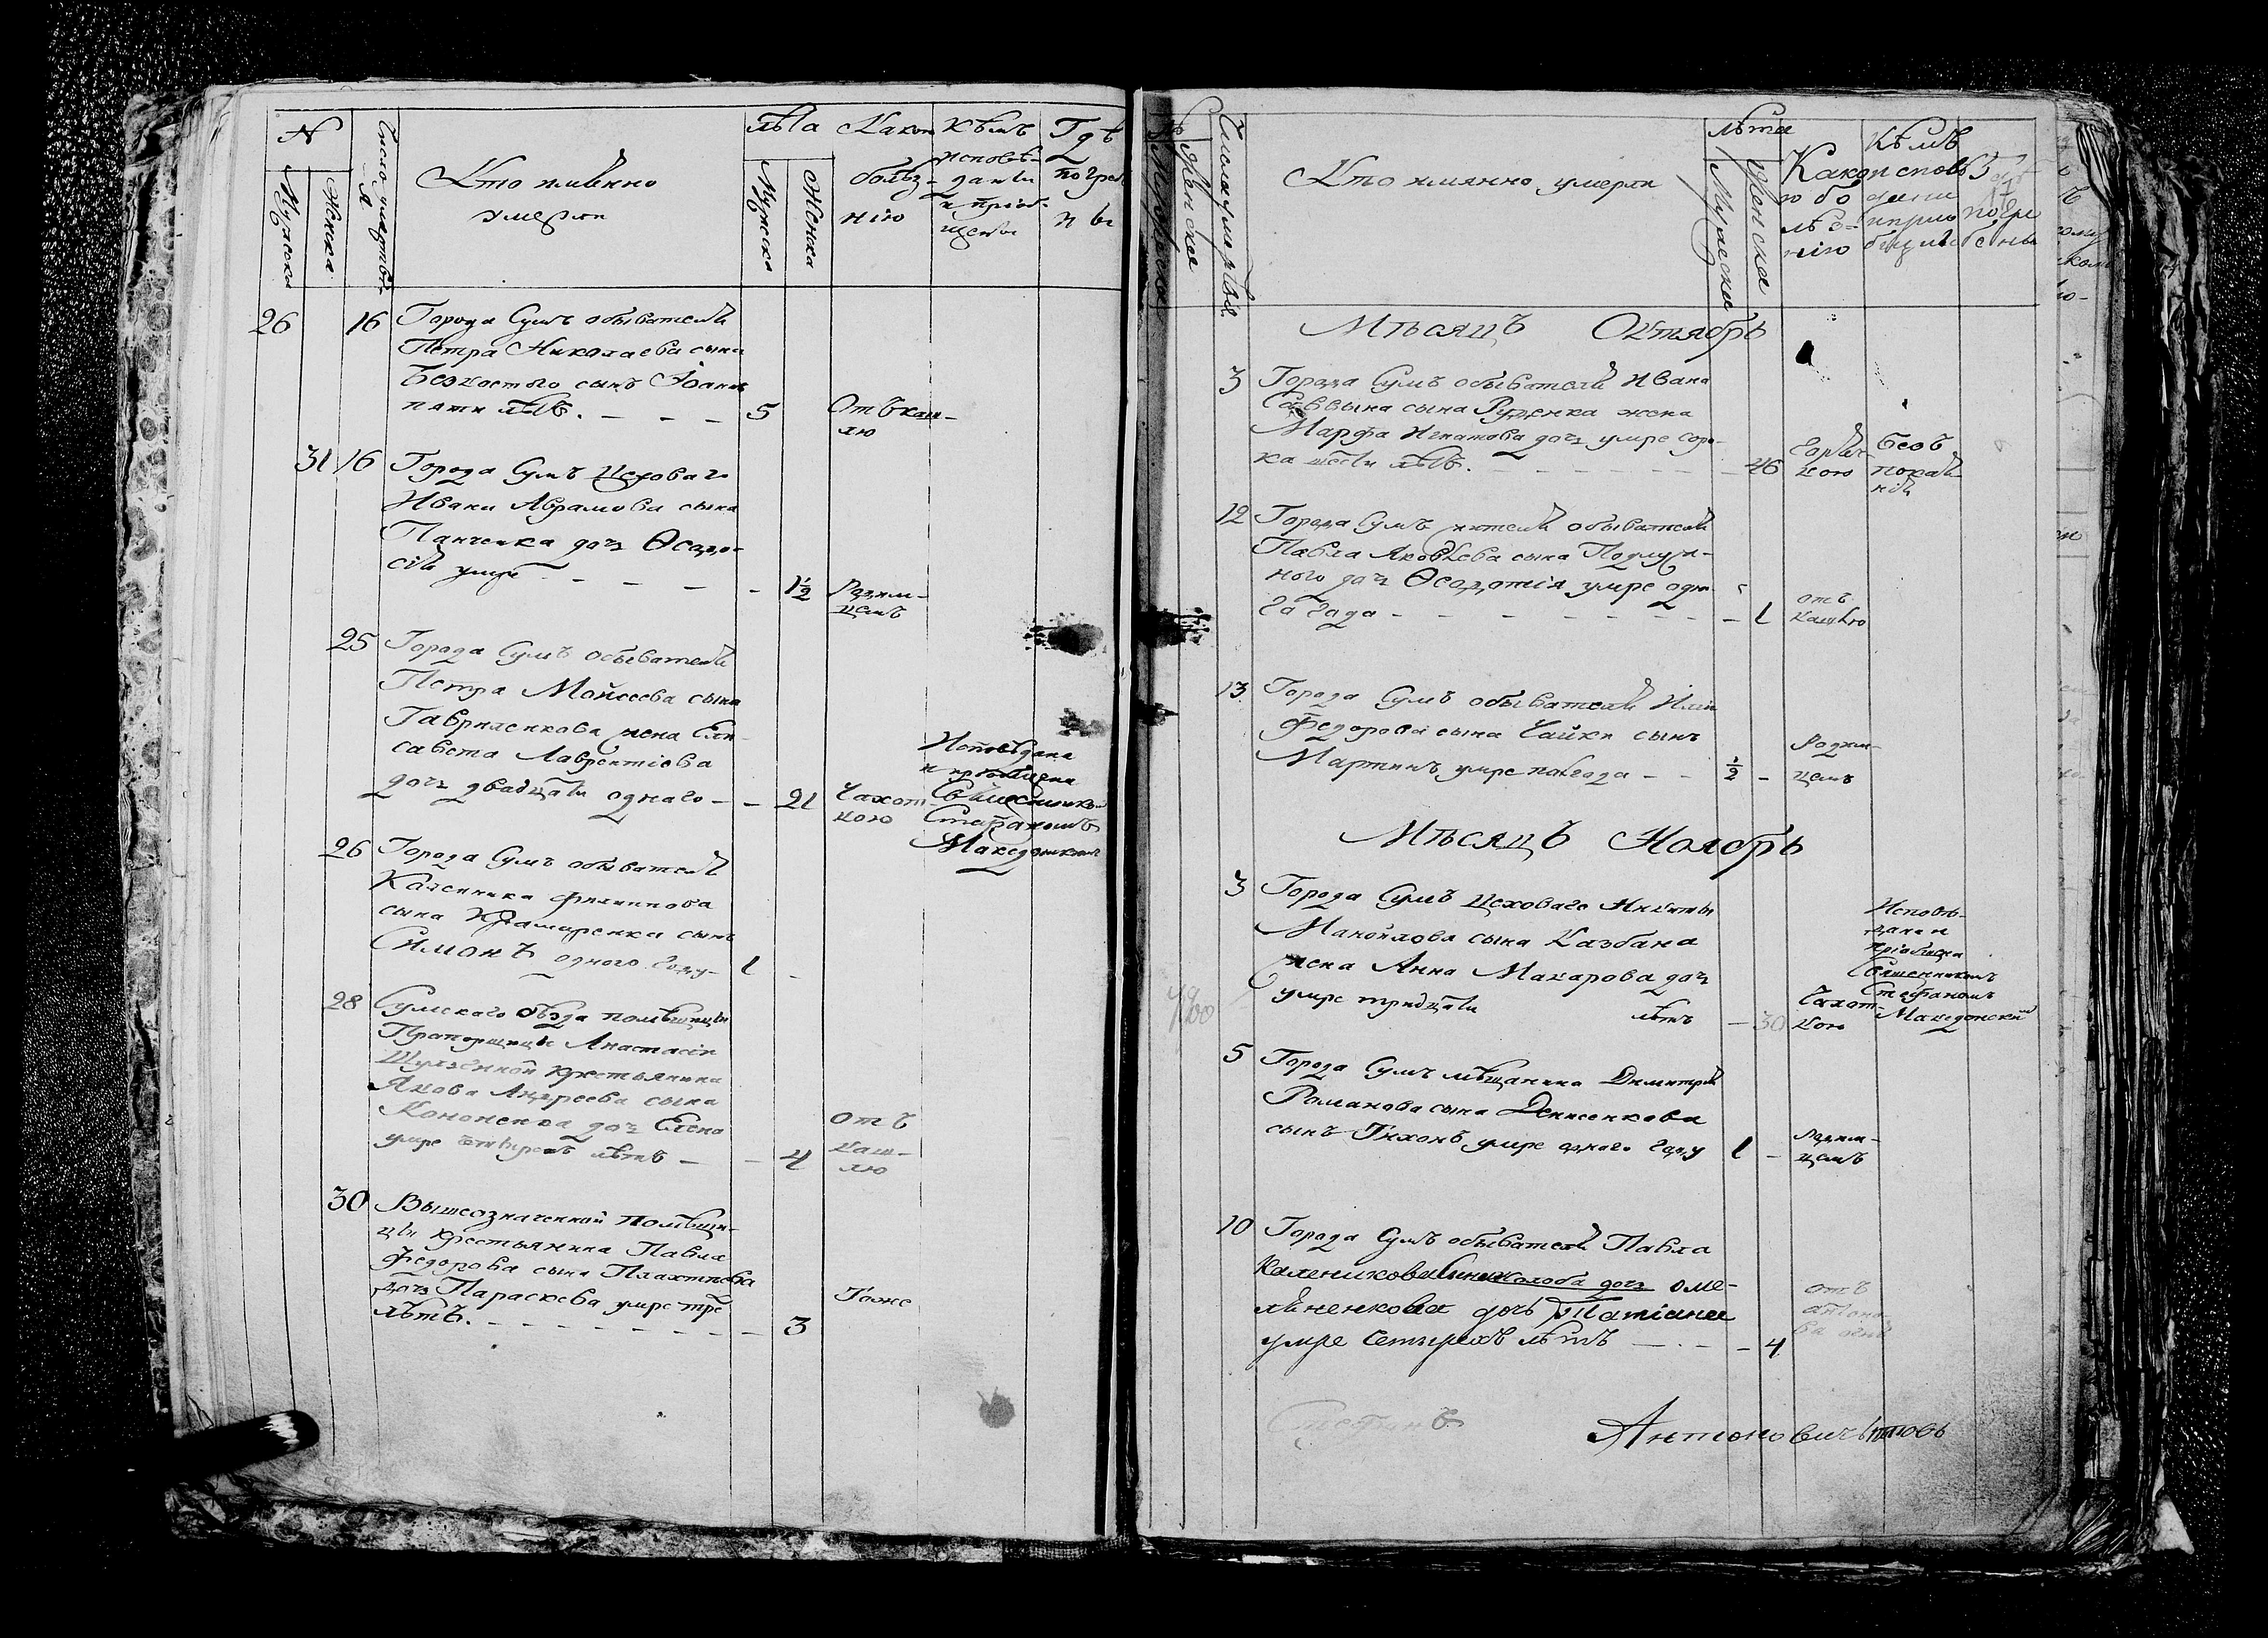 N
Мужеска
Женска
Число умертвія
Кто имѣнно
умерли
лѣта
Мужеска
Женска
Какою
болѣз-
нію
Кѣмъ
исповѣ-
даны
и пріоб-
щены
Гдѣ
погреб
ны
26 16 Города Сумъ обывателя
Петра Николаева сына
Безкостого сынъ Іоаннъ
пяти лѣтъ. — — — 5 Отъ каш-
лю
31 16 Города Сумъ цеховаго
Ивана Абрамова сына
Панченка дочь Ѳеодо-
сія умре - - - - 1½ Родим-
цемъ
25 Города Сумъ обывателя
Петра Мойсеева сына
Гавриленкова жена Ели-
савета Лаврентіева
дочь двадцати одного - - 21 Чахот-
кою
Исповѣдана
и пріобщена
Священникомъ
Стефаномъ
Македонскимъ
26 Города Сумъ обывателя
Каленика Филиппова
сына Крамаренка сынъ
Симонъ одного году - 1 -
28 Сумского Оѣзда помѣщицы
Прапорщицы Анастасіи
крестьянина
Якова Андреева сына
Кононенка дочь Елена
умре четырехъ лѣтъ — — 4 отъ
каш-
лю
30 Вышеозначенной помѣщи-
цы крестьянина Павла
Федорова сына
дочь Параскева умре трe
лѣтъ. - - - - - - - - 3 Тоже
Мужеска
Женска
Числоумертвія
Кто имянно умерли
лѣта
Мужеска
Женска
Како
ю бо
лѣз-
нію
Кѣмъ
исповѣ
даны
и прио
бщены
Гдѣ
17
погре
бены
Мѣсяцъ Октябрь
3 Города Сумъ обывателя Ивана
Саввина сына Руденка жена
Марфа Игнатова дочь умре соро-
ка шести лѣтъ. - - - - - - 46 Горяч-
кою безъ
покая-
нія
12 Города Сумъ жителя обывателя
Павла Яковлева сына Подлуж-
ного дочь Ѳеодотія умре одно-
го года - - - - - - - - - 1 отъ
кашлю
13 Города Сумъ обывателя Иліи
Федорова сына Чайки сынъ
Мартинъ умре полгода - - ½ - Родим-
цемъ
Мѣсяцъ Ноябрь
3 Города Сумъ цеховаго Никиты
Манойлова сына Казбана
жена Анна Макарова дочь
умре тридцати лѣтъ — 30 Чахот-
кою
Исповѣ-
дана и
пріобщена
Священникомъ
Стефаномъ
Македонскимъ
5 Города Сумъ мѣщанина Димитрія
Романова сына Денисенкова
сынъ Тихонъ умре одного году 1 - Родим-
цемъ
10 Города Сумъ обывателя Павла
Каленикова сына дочь Оме-
льненкова дочь Татіана
умре Четырехъ лѣтъ — - - - 4 отъ
антоно-
ва огня
Стефанъ
Антоновичъ